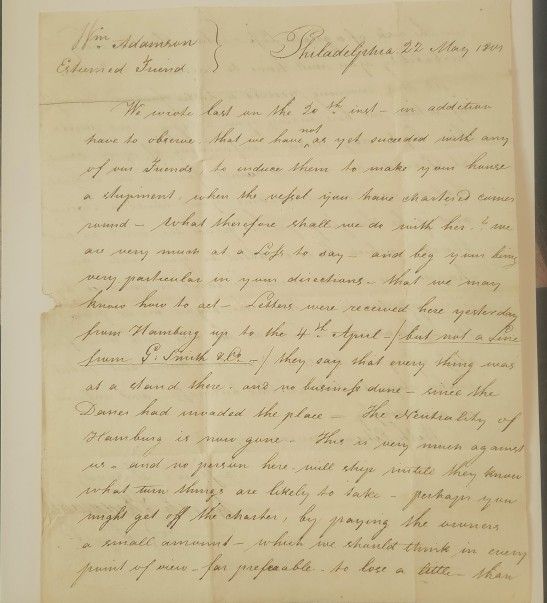 Wm Adamson
Esteemed Friend
Philadelphia 22 May 1801
We wrote last on the 20th inst — in addition
have to observe, that we have not as yet succeeded with any
of our Friends to induce them to make your house
a shipment, when the vessel you have chartered comes
round — What therefore shall we do with her. — we
are very much at a Loss to say — and beg your being
very particular in your directions — that we may
know how to act — Letters were received here yesterday
from Hamburg up to the 4th April — / but not a Line
from G. Smith & Co — / they say that every thing was
at a stand there. and no business done — since the
Danes had invaded the place — The Neutrality of
Hamburg is now gone — This is very much against
us — and no person here will ship untill they know
what turn things are likely to take — perhaps you
might get off the charter, by paying the owners
a small amount — which we should think in every
point of view — far preferable — to lose a little — than